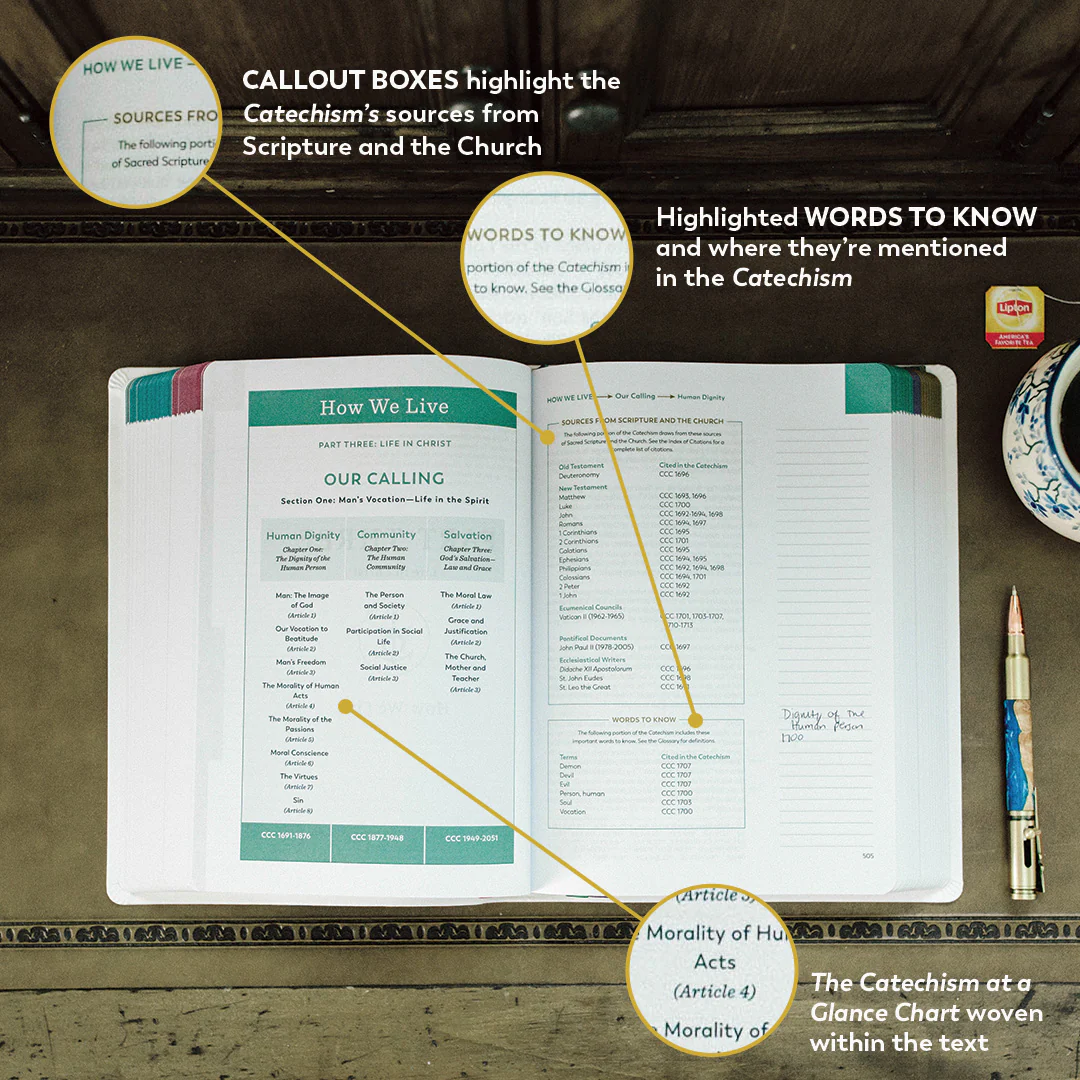 HOW WE LIVE
SOURCES FRO
The following porti
of Sacred Scripture
CALLOUT BOXES highlight the
Catechism's sources from
Scripture and the Church
WORDS TO KNOW
portion of the Catechism i
to know. See the Glossa
Highlighted WORDS TO KNOW
and where they're mentioned
in the Catechism
Lipton
AMERICA'S
FAVORITE TEA
How We Live
PART THREE: LIFE IN CHRIST
OUR CALLING
Section One: Man's Vocation—Life in the Spirit
Human Dignity
Chapter One:
The Dignity of the
Human Person
Man: The Image
of God
(Article 1)
Our Vocation to
Beatitude
(Article 2)
Man's Freedom
(Article 3)
The Morality of Human
Acts
(Article 4)
The Morality of the
Passions
(Article 5)
Moral Conscience
(Article 6)
The Virtues
(Article 7)
Sin
(Article 8)
CCC 1691-1876
Community
Chapter Two:
The Human
Community
The Person
and Society
(Article 1)
Participation in Social
Life
(Article 2)
Social Justice
(Article 3)
CCC 1877-1948
Salvation
Chapter Three:
God's Salvation—
Law and Grace
The Moral Law
(Article 1)
Grace and
Justification
(Article 2)
The Church,
Mother and
Teacher
(Article 3)
CCC 1949-2051
HOW WE LIVE → Our Calling → Human Dignity
SOURCES FROM SCRIPTURE AND THE CHURCH
The following portion of the Catechism draws from these sources
of Sacred Scripture and the Church. See the Index of Citations for a
complete list of citations.
Old Testament Cited in the Catechism
Deuteronomy CCC 1696
New Testament
Matthew CCC 1693, 1696
Luke CCC 1700
John CCC 1692-1694, 1698
Romans CCC 1694, 1697
1 Corinthians CCC 1695
2 Corinthians CCC 1701
Galatians CCC 1695
Ephesians CCC 1694, 1695
Philippians CCC 1692, 1694, 1698
Colossians CCC 1694, 1701
2 Peter CCC 1692
1 John CCC 1692
Ecumenical Councils
Vatican II (1962-1965) CCC 1701, 1703-1707,
1710-1713
Pontifical Documents
John Paul II (1978-2005) CCC 1697
Ecclesiastical Writers
Didache XII Apostolorum CCC 1696
St. John Eudes CCC 1698
St. Leo the Great CCC 1691
WORDS TO KNOW
The following portion of the Catechism includes these
important words to know. See the Glossary for definitions.
Terms Cited in the Catechism
Demon CCC 1707
Devil CCC 1707
Evil CCC 1707
Person, human CCC 1700
Soul CCC 1703
Vocation CCC 1700
Dignity of the
Human Person
1700
505
(Article 3)
Morality of Hu
Acts
(Article 4)
Morality of
The Catechism at a
Glance Chart woven
within the text